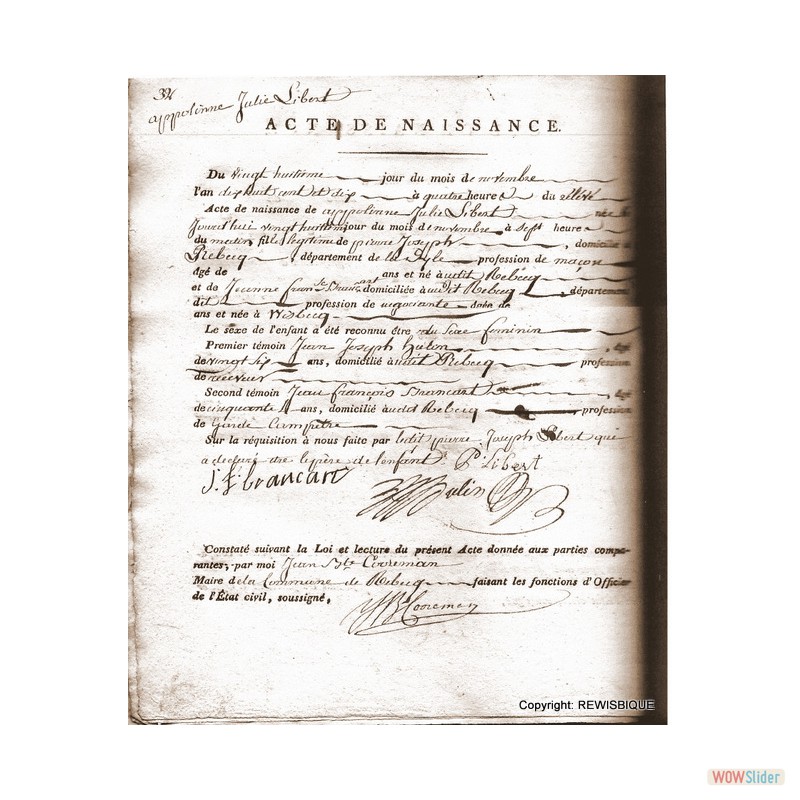 32
appolinne Julie Libert
ACTE DE NAISSANCE.
Du vingt huitieme jour du mois de novembre
l'an dix huit cent et dix à quatre heures du
Acte de naissance de appolinne Julie Libert née le
Jourd'hui vingt huitieme jour du mois de novembre à Sept heures
du matin fille legitime de pierre Joseph , domicilié à
Rebecq , département de la Dyle profession de maçon
âgé de ans et né à udit Rebecq
et de Jeanne domiciliée à udit Rebecq , département
dit profession de negociante âgée de
ans et née à Wisbecq
Le sexe de l'enfant a été reconnu être du Sexe feminin
Premier témoin Jean Joseph Hulin , âgé
de vingt six ans, domicilié à udit Rebecq profession
de receveur
Second témoin Jean françois Brancart , âgé
de cinquante ans, domicilié à udit Rebecq profession
de Garde Campetre
Sur la réquisition à nous faite par ledit pierre Joseph Libert qui
a declaré etre le père de l'enfant. P Libert
J. f. brancart
Hulin
Constaté suivant la Loi et lecture du présent Acte donnée aux parties compa-
rantes, par moi Jean Bte Cooreman
Maire de la Commune de Rebecq faisant les fonctions d'Officier
de l'État civil, soussigné,
JB Cooreman
Copyright: REWISBIQUE
WOWSlider